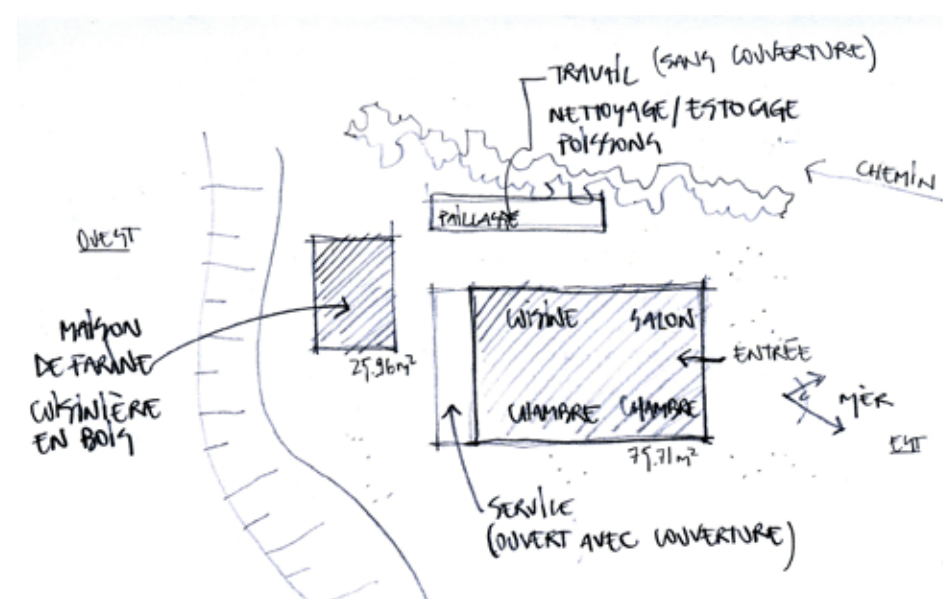 TRAVAIL (SANS COUVERTURE)
NETTOYAGE/ESTOCAGE
POISSONS
CHEMIN
PAILLASSE
OUEST
MAISON
DE FARINE
CUISINIÈRE
EN BOIS
25.96m²
CUISINE
SALON
ENTRÉE
CHAMBRE
CHAMBRE
MÈR
EST
75.71m²
SERVICE
(OUVERT AVEC COUVERTURE)